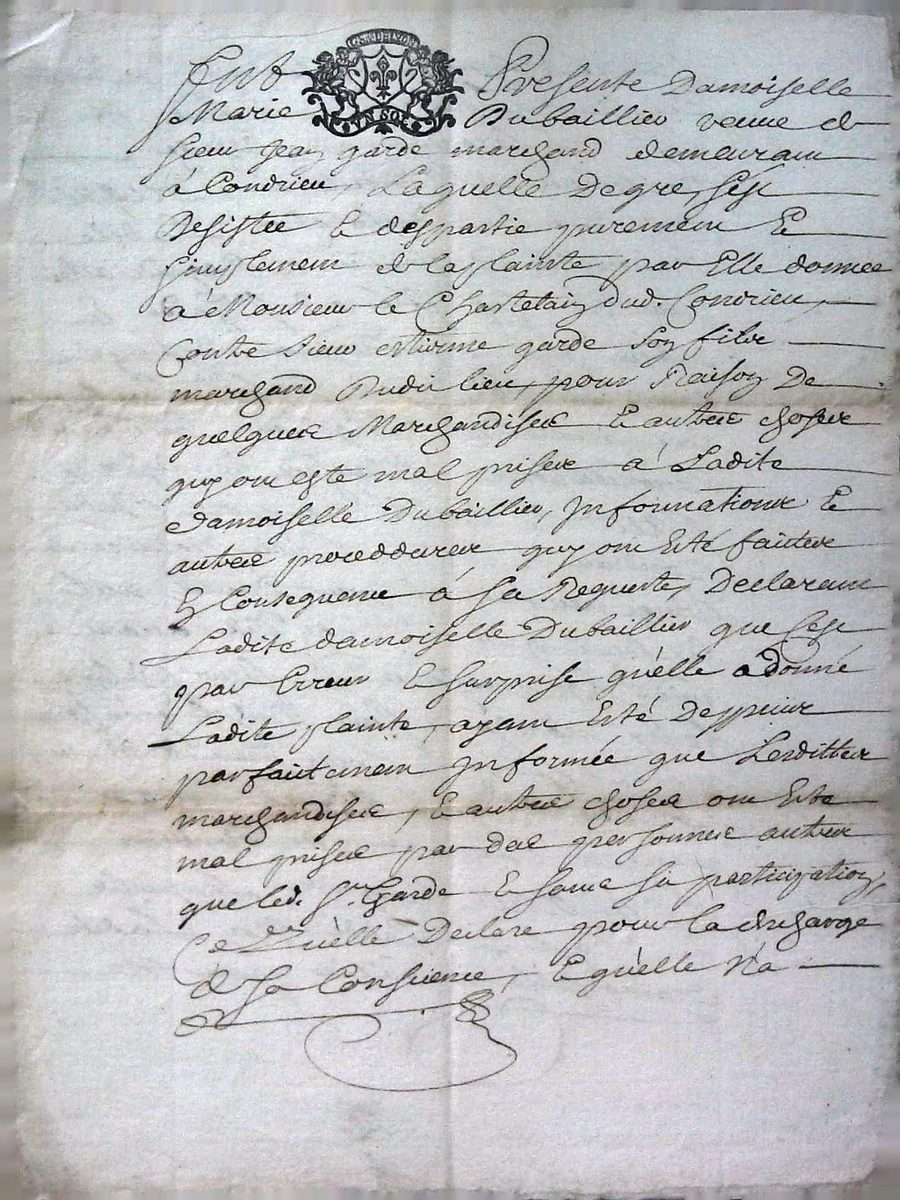 GEN. DE LYON
UN SOL
Fut Presente Damoiselle
Marie Dubaillier veuve de
sieur Jean garde marchand demeurant
à Condrieu, Laquelle de gre, sest
Desistée et despartie purement et
simplement de la plainte par Elle donnée
a Monsieur le Chastelain dud. Condrieu,
Contre sieur estienne garde son filz
marchand dudit lieu, pour Raison De
quelques Marchandises et autres choses
quy ont esté mal prises à Ladite
damoiselle Dubaillier, Informations et
autres proceddures quy ont Esté faittes
En Consequence à sa Requeste, Declarant
Ladite damoiselle Dubaillier que sest
par Erreur et surprise qu'elle a donné
Ladite plainte, ayant Esté Deppuis
parfaitement Informée que Lesdittes
marchandises, et autres choses ont Esté
mal prises par des personnes autres
que led. Sr. Garde et sans sa participation,
Ce qu'elle Declare pour la descharge
de sa Consience, et qu'elle n'a